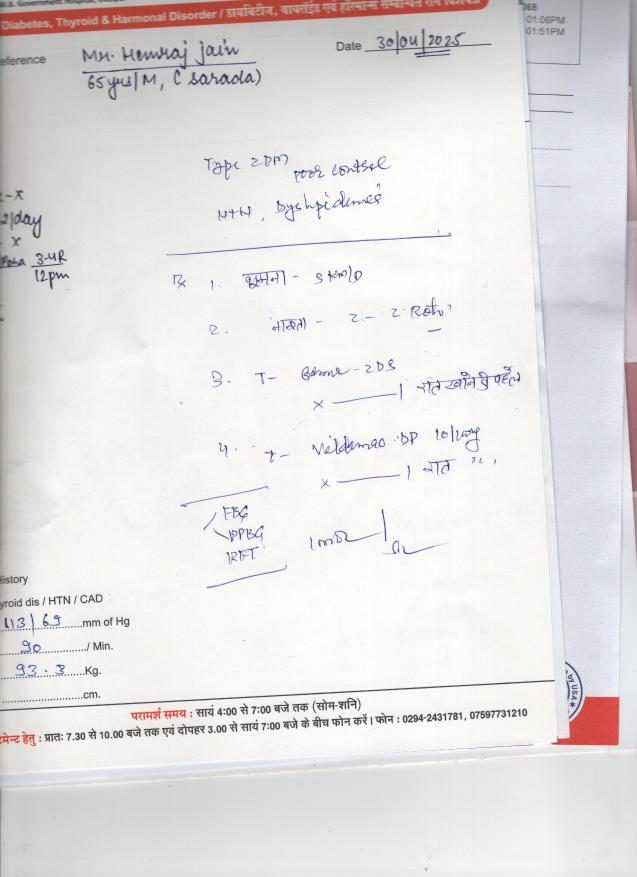 Diabetes, Thyroid & Harmonal Disorder / डायबिटीज, थायरॉईड एवं हारमोन्स सम्बन्धित रोग विशेषज्ञ
068
01:06PM
01:51PM
eference Mr. Hemraj jain Date 30/04/2025
65yrs/M, (Sarada)
Type 2DM poor control
HTN,
2/day
x
3-4R
12pm
Rx 1. घूमना - 5 KM/D
2. नाश्ता - 2 - 2 Roti
3. T- - 2DS
x 1 रात खाने से पहले
4. T- DP 10/
x 1 रात "
FBG
PPBG
RFT
istory
yroid dis / HTN / CAD
113/69 mm of Hg
90 / Min.
93.3 Kg.
cm.
by USA
परामर्श समय : सायं 4:00 से 7:00 बजे तक (सोम-शनि)
टमेन्ट हेतु : प्रातः 7.30 से 10.00 बजे तक एवं दोपहर 3.00 से सायं 7:00 बजे के बीच फोन करें। फोन : 0294-2431781, 07597731210